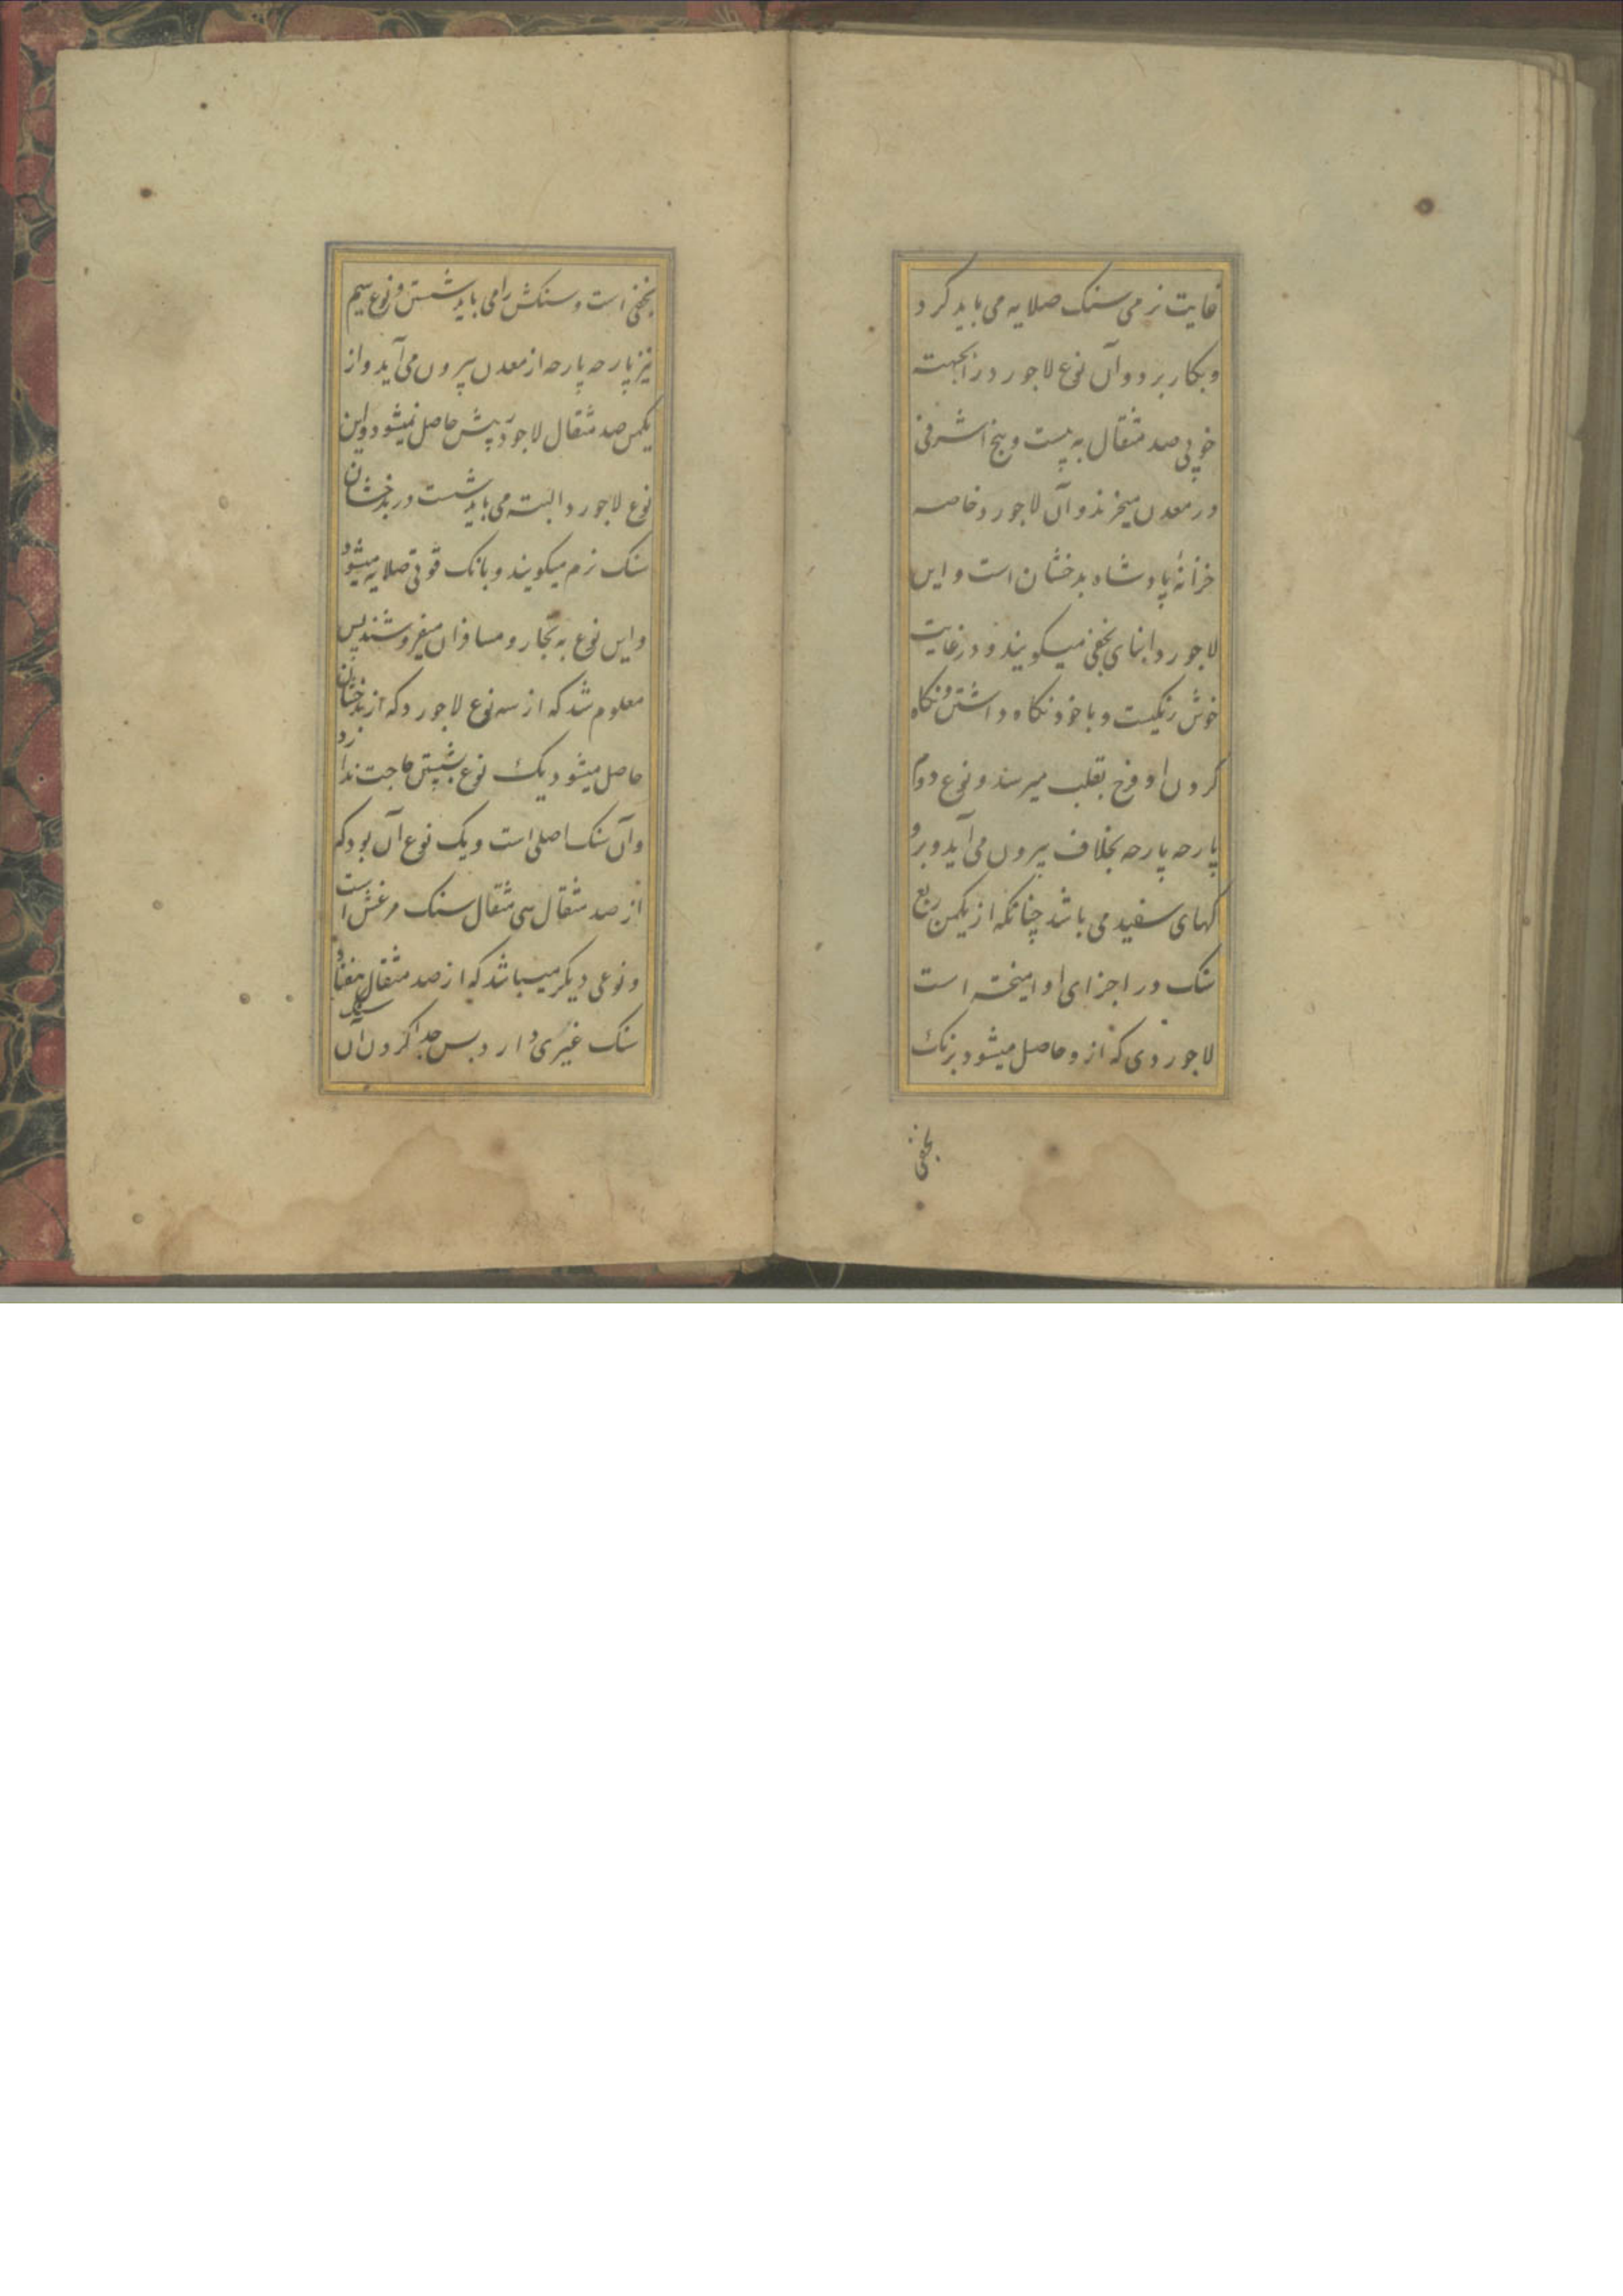 غایت نرمی سنک صلایه می باید کرد
و بکار برد و آن نوع لاجورد از جهته
خوبی صد مثقال به بیست و پنج اشرفی
در معدن میخرند و آن لاجورد خاصه
خزانهٔ پادشاه بدخشان است و این
لاجورد را نمای نجفی میکویند و در غایت
خوش رنکیست و با خود نکاه داشتن و نکاه
کردن او فرح بقلب میرسد و نوع دوم
پارچه پارچه بخلاف بیرون می آید و برو
رکهای سفید می باشد چنانکه از یکمن ربع
سنک در اجزای او امیخته است
لاجوردی که از و حاصل میشود برنک
نجفی
نجفی است و سنکش را می باید شستن و نوع سیم
نیز پارچه پارچه از معدن بیرون می آید و از
یکمن صد مثقال لاجورد بیش حاصل نمیشود و این
نوع لاجورد البته می باید شست در بدخشان
سنک نرم میکویند و بانک قوتی صلایه میشود
و این نوع به تجار و مسافران میفروشند پس
معلوم شد که از سه نوع لاجورد که از بدخشان
حاصل میشود یک نوع بشستن حاجت ندارد
و آن سنک اصلی است و یک نوع آن بود که
از صد مثقال سی مثقال سنک مرغش است
و نوعی دیکر میباشد که از صد مثقال هفتاد
سنک غیری دارد بس جدا کردن آن سنک